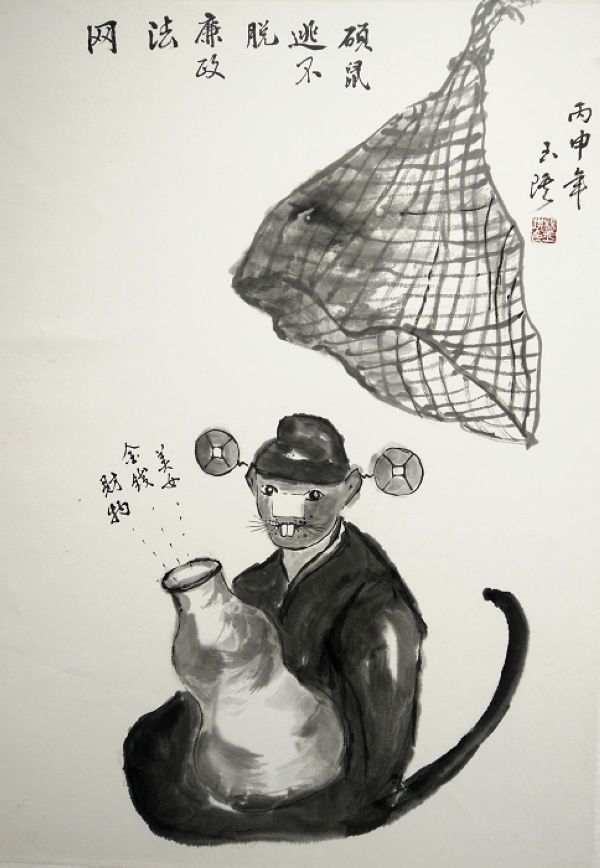 硕鼠
逃不
脱
廉政
法
网
丙申年
玉
美女
金钱
财物